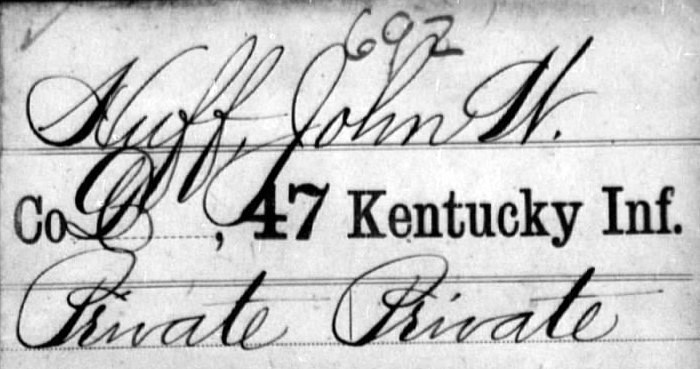 692
Huff, John W.
Co. D, 47 Kentucky Inf.
Private Private